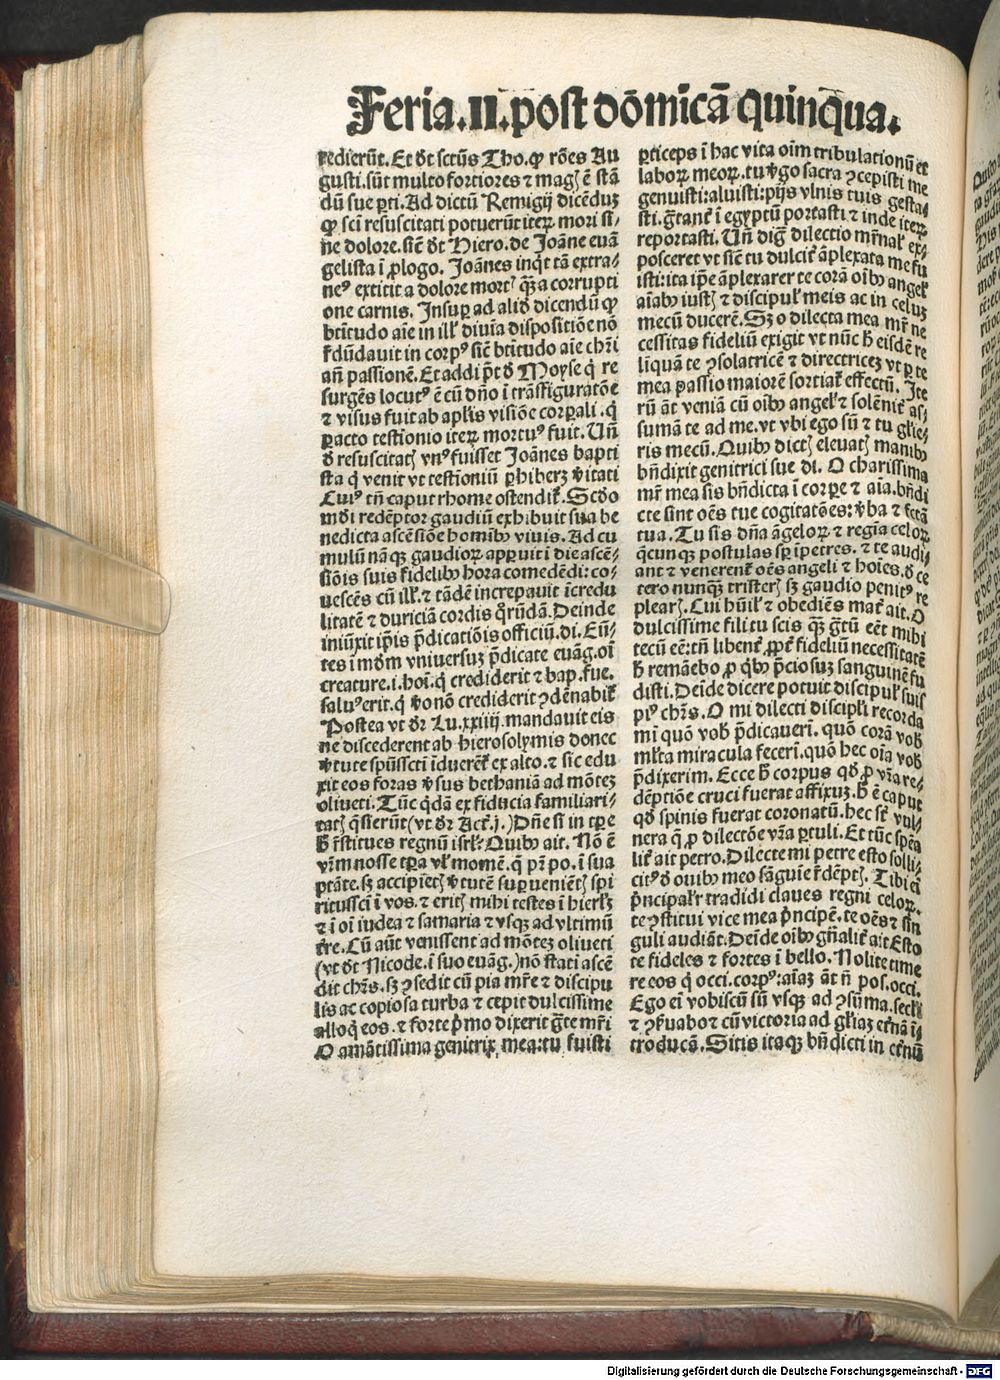 Feria.II.post dōmicā quinqua.
redierūt. Et dt sctūs Tho. ꝙ rōes Au
gusti. sūt multo fortiores ⁊ magꝭ ē stā
dū sue ꝑti. Ad dictū Remigij dicēduꝫ
ꝙ sci resuscitati potuerūt iteꝝ mori si-
ne dolore. sic̄ dt Hiero. de Joāne euā
gelista ī ꝓlogo. Joānes inqͥt tā extra-
neꝰ extitit a dolore mortꝭ qꝫ a corrupti
one carnis. Insuꝑ ad aliđ dicendū ꝙ
btītudo aīe in illꝭ diuīa dispositiōe nō
r̄dūdauit in corpꝰ sic̄ btītudo aīe chr̄i
añ passionē. Et addi pt đ Moyse qͥ re
surgēs locutꝰ ē cū dño ī trāsfiguratōe
⁊ visus fuit ab aplis visiōe corꝑali. qͥ
ꝑacto testīonio iteꝝ mortuꝰ fuit. Uñ
đ resuscitatꝭ vnꝰ fuisset Joānes bapti
sta qͥ venit vt testioniū ꝑhiberꝫ v̄itati
Cuiꝰ tñ caput rhome ostendit̄. Scđo
mđi redēptor gaudiū exhibuit sua be
nedicta ascēsiōe homībꝰ viuis. Ad cu
mulū nāqꝫ gaudioꝝ apꝑuit ī die ascē-
siōis suis fidelibꝰ hora comedēdi: co-
uescēs cū illꝭ ⁊ tādē increpauit īcredu
litatē ⁊ duriciā cordis qͦrūdā. Deinde
iniūxit ip̄is p̄dicatiōis officiū. di. Eū-
tes ī mđm vniuersuꝫ p̄dicate euāg. oī
creature. i. hoī. qͥ crediderit ⁊ bap. fue.
saluꝰ erit. qͥ vͦo nō crediderit ꝯdēnabit̄
Postea vt dr Lu. xxiiij. mandauit eis
ne discederent ab hierosolymis donec
v̄tute spūsscti īduerēt̄ ex alto. ⁊ sic edu
xit eos foras v̄sus bethaniā ad mōteꝫ
oliueti. Tūc qͥdā ex fiducia familiari-
tatꝭ qͥsierūt (vt dr Act. j.) Dñe si in tꝑe
h̄ r̄stitues regnū isrl̄? Quibꝰ ait. Nō ē
vr̄m nosse tꝑa vl̄ momē. q̄ pr̄ po. ī sua
ptāte. sꝫ accipietꝭ v̄tutē suꝑueniētꝭ spi
ritussci ī vos. ⁊ eritꝭ mihi testes ī hierlꝫ
⁊ ī oī iudea ⁊ samaria ⁊ vsqꝫ ad vltimū
tr̄e. Cū aūt venissent ad mōteꝫ oliueti
(vt dt Nicode. ī suo euāg.) nō stati ascē
dit chr̄s. sꝫ ꝯsedit cū pia mr̄e ⁊ discipu
lis ac copiosa turba ⁊ cepit dulcissime
alloqͥ eos. ⁊ forte pͥmo dixerit gͣte mr̄i
O amātissima genitrix mea: tu fuisti
ꝑticeps ī hac vita oīm tribulationū et
laboꝝ meoꝝ. tu v̄go sacra ꝯcepisti me
genuisti: aluisti: pijs vlnis tuis gesta-
sti. gͣtant̄ ī egyptū portasti ⁊ inde iteꝝ
reportasti. Uñ digͣ dilectio mr̄nalꝭ ex-
posceret vt sic̄ tu dulcit̄ āplexata me fu
isti: ita ip̄e āplexarer te corā oībꝰ angelꝭ
aīabꝰ iustꝭ ⁊ discipulꝭ meis ac in celuꝫ
mecū ducerē. Sꝫ o dilecta mea mr̄ ne
cessitas fideliū exigit vt nūc h̄ eisdē re
līquā te ꝯsolatricē ⁊ directriceꝫ vt ꝑ te
mea passio maiorē sortiat̄ effectū. Ite
rū āt veniā cū oībꝰ angelꝭ ⁊ solēnit̄ as-
sumā te ad me. vt vbi ego sū ⁊ tu gl̄ie-
ris mecū. Quibꝰ dictꝭ eleuatꝭ manibꝰ
bñdixit genitrici sue di. O charissima
mr̄ mea sis bñdicta ī corꝑe ⁊ aīa. bñdi
cte sint oēs tue cogitatōes: v̄ba ⁊ fctā
tua. Tu sis dñā āgeloꝝ ⁊ regīa celoꝝ
qͣcunqꝫ postulas sꝑ īpetres. ⁊ te audi-
ant ⁊ venerent̄ oēs angeli ⁊ hoīes. đ ce
tero nunqꝫ tristerꝭ sꝫ gaudio penitꝰ re
plearꝭ. Cui hūil̄ ⁊ obediēs mat̄ ait. O
dulcissime fili tu scis qꝫ gͣtū eēt mihi
tecū eē: tñ libent̄ ꝓpt̄ fideliū necessitatē
h̄ remāebo ꝓ qͥbꝰ p̄ciosuꝫ sanguinē fu
disti. Deīde dicere potuit discipulꝭ suis
piꝰ chr̄s. O mi dilecti discipl̄i recorda
mī quō vob̄ p̄dicauerī. quō corā vob̄
ml̄ta miracula fecerī. quō hec oīa vob̄
p̄dixerim. Ecce h̄ corpus qđ ꝓ vr̄a re-
dēptiōe cruci fuerat affixuꝫ. h̄ ē caput
qđ spinis fuerat coronatū. hec st̄ vul-
nera q̄ ꝓ dilectōe vr̄a ꝑtuli. Et tūc spēa
lit̄ ait petro. Dilecte mi petre esto solli-
citꝰ đ ouibꝰ meo sāguie r̄dēptꝭ. Tibi eī
pͥncipalr̄ tradidi claues regni celoꝝ.
te ꝯstitui vice mea pͥncipē. te oēs ⁊ sin
guli audiāt. Deīde oībꝰ gñalit̄ ait Esto
te fideles ⁊ fortes ī bello. Nolite time
re eos qͥ occi. corpꝰ: aīaꝫ āt ñ pos. occi.
Ego eī vobiscū sū vsqꝫ ad ꝯsūma. secl̄i
⁊ ꝯẜuabo ⁊ cū victoria ad gl̄iaꝫ et̄nā ī-
troducā. Sitis itaqꝫ bñdicti in et̄nū
Digitalisierung gefördert durch die Deutsche Forschungsgemeinschaft - DFG